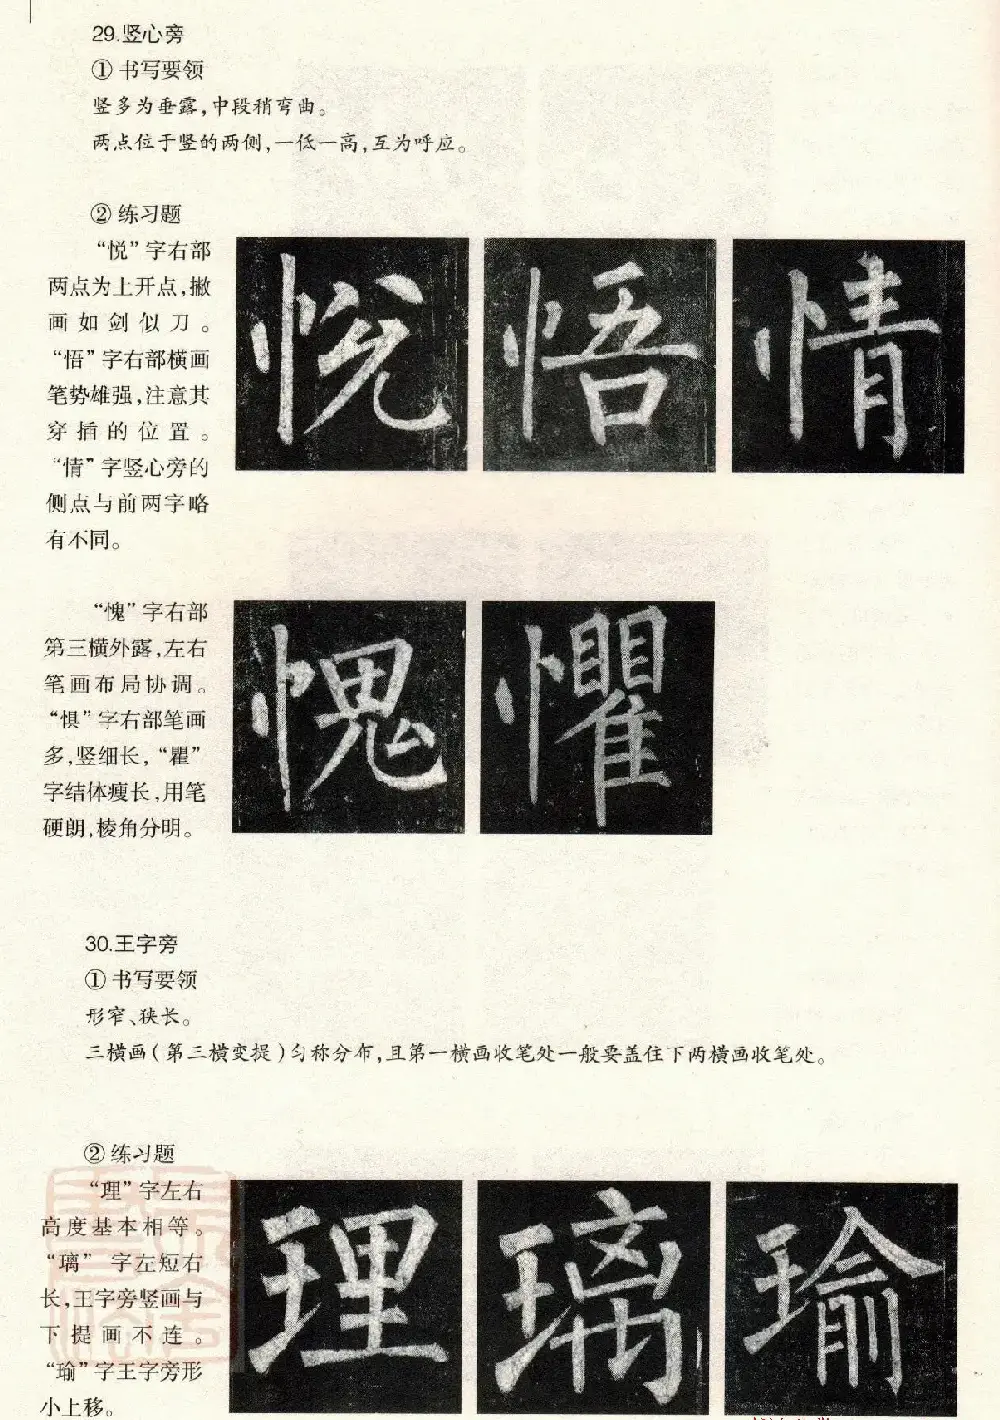 29.竖心旁
① 书写要领
竖多为垂露,中段稍弯曲。
两点位于竖的两侧,一低一高,互为呼应。
② 练习题
“悦”字右部
两点为上开点,撇
画如剑似刀。
“悟”字右部横画
笔势雄强,注意其
穿插的位置。
“情”字竖心旁的
侧点与前两字略
有不同。
悦 悟 情
“愧”字右部
第三横外露,左右
笔画布局协调。
“惧”字右部笔画
多,竖细长,“瞿”
字结体瘦长,用笔
硬朗,棱角分明。
愧 懼
30.王字旁
① 书写要领
形窄、狭长。
三横画(第三横变提)匀称分布,且第一横画收笔处一般要盖住下两横画收笔处。
② 练习题
“理”字左右
高度基本相等。
“璃”字左短右
长,王字旁竖画与
下提画不连。
“瑜”字王字旁形
小上移。
理 璃 瑜